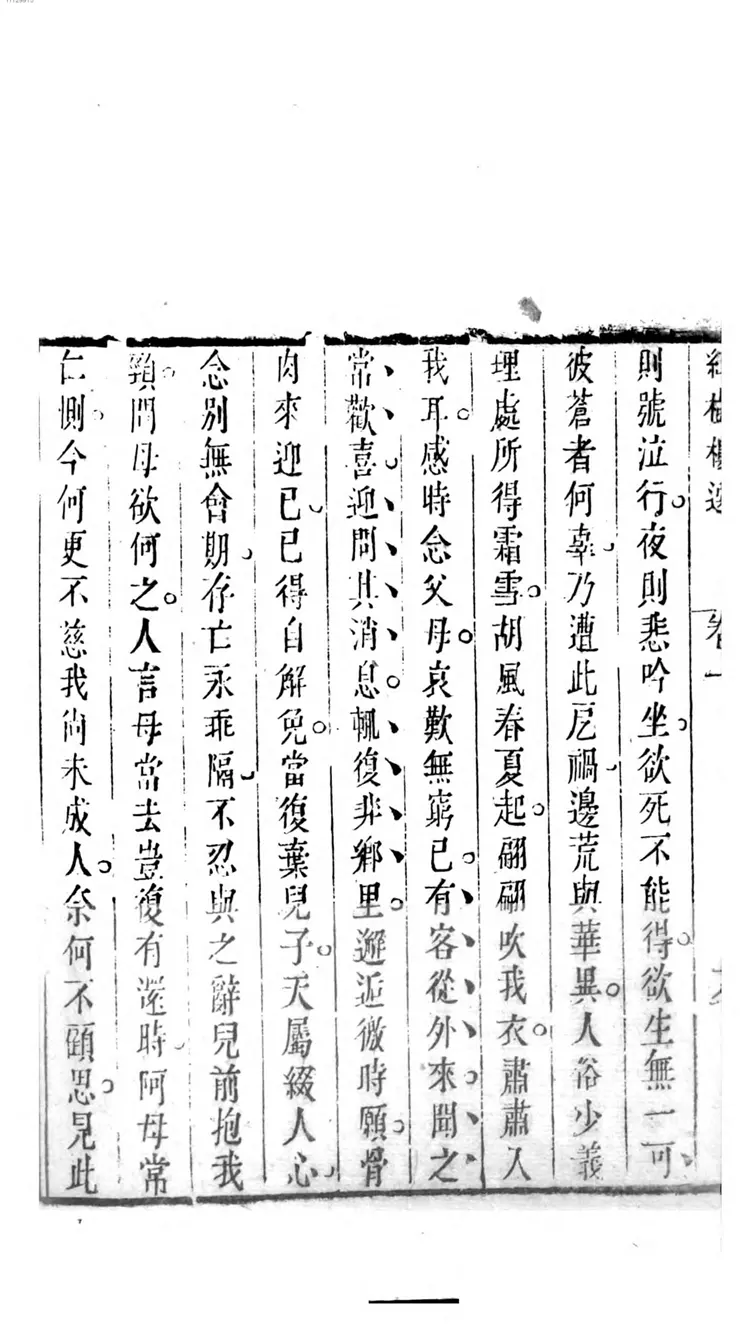 紅樹樓選 卷一
則號泣行。夜則悲吟坐。欲死不能得。欲生無一可、
彼蒼者何辜。乃遭此戹禍。邊荒與華異。人俗少義
理處所得霜雪。胡風春夏起。翩翩吹我衣。肅肅入
我耳。感時念父母。哀歎無窮已。有客從外來。聞之
常歡喜。迎問其消息。輒復非鄉里。邂逅徼時願。骨
肉來迎已。已得自解免。當復棄兒子。天屬綴人心。
念別無會期。存亡永乖隔。不忍與之辭兒前抱我
頸。問母欲何之。人言母當去豈復有還時。阿母常
仁惻。今何更不慈我尚未成人。奈何不顧思。見此